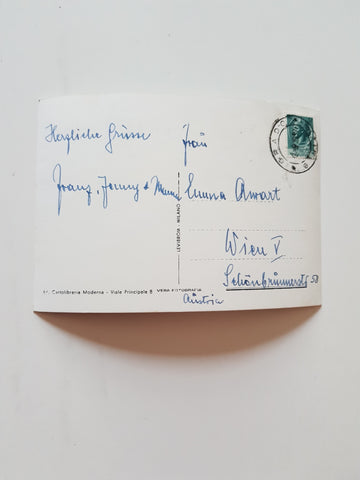 Herzliche Grüsse
Franz, Jenny + Mama
Frau
Emma Awart
Wien V
Schönbrunnerstr 58
Austria
LEVIBROM - MILANO
Cartolibreria Moderna - Viale Principale 8
VERA FOTOGRAFIA
GRADO